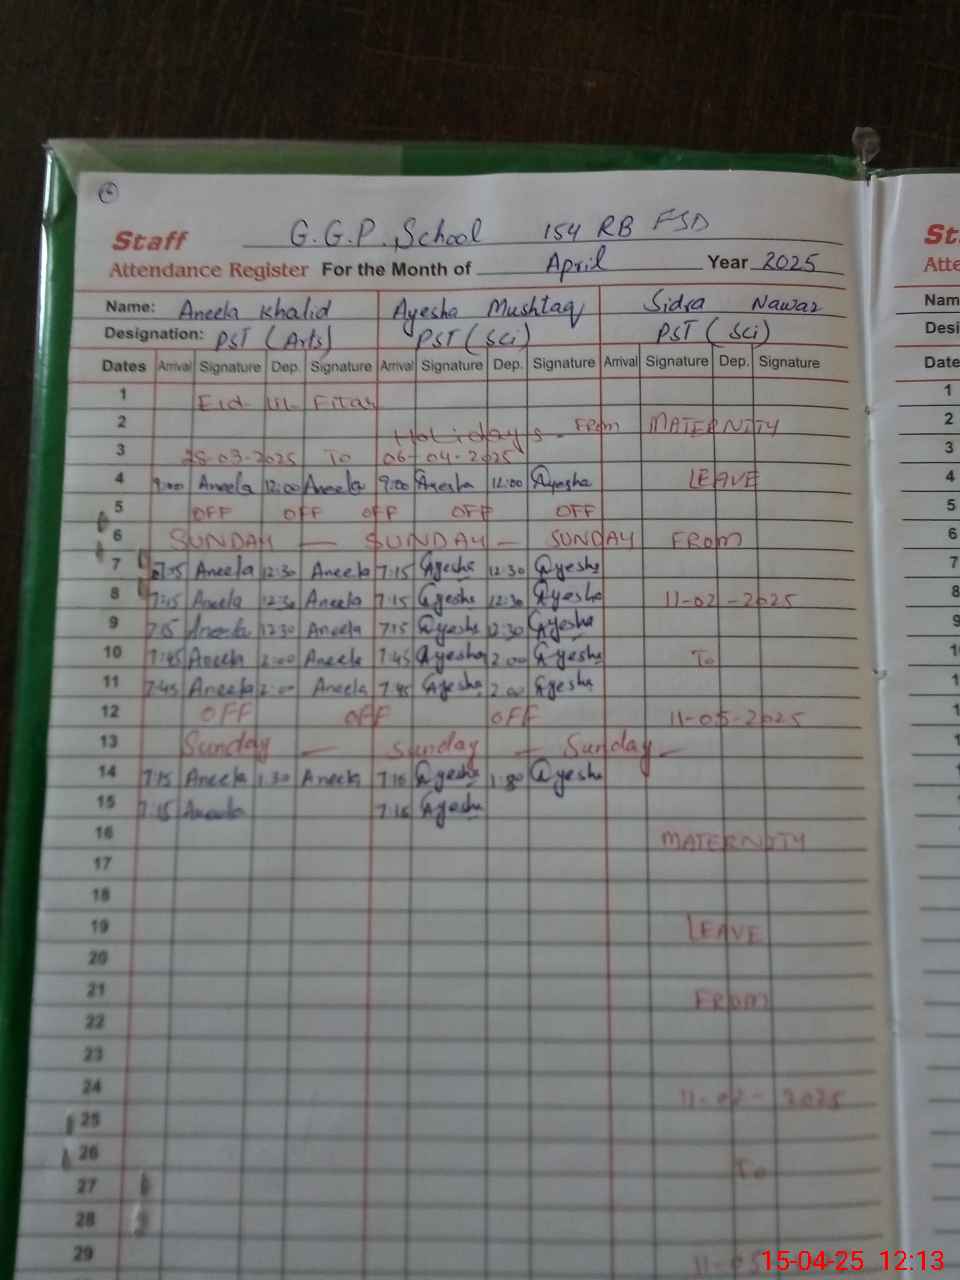 6
Staff G.G.P. School 154 RB FSD
Attendance Register For the Month of April Year 2025
Name: Aneela Khalid Ayesha Mushtaq Sidra Nawaz
Designation: PST (Arts) PST (Sci) PST (Sci)
Dates Arrival Signature Dep. Signature Arrival Signature Dep. Signature Arrival Signature Dep. Signature
1 Eid- Ul- Fitar
2 Holidays - From MATERNITY
3 28-03-2025 To 06-04-2025
4 9:00 Aneela 12:00 Aneela 9:00 Ayesha 12:00 Ayesha LEAVE
5 OFF OFF OFF OFF OFF
6 SUNDAY — SUNDAY — SUNDAY FROM
7 7:15 Aneela 12:30 Aneela 7:15 Ayesha 12:30 Ayesha
8 7:15 Aneela 12:30 Aneela 7:15 Ayesha 12:30 Ayesha 11-02-2025
9 7:15 Aneela 12:30 Aneela 7:15 Ayesha 12:30 Ayesha
10 7:45 Aneela 2:00 Aneela 7:45 Ayesha 2:00 Ayesha To
11 7:45 Aneela 2:00 Aneela 7:45 Ayesha 2:00 Ayesha
12 OFF OFF OFF 11-05-2025
13 Sunday — Sunday — Sunday —
14 7:15 Aneela 1:30 Aneela 7:15 Ayesha 1:30 Ayesha
15 7:15 Aneela 7:15 Ayesha
16 MATERNITY
17
18
19 LEAVE
20
21 FROM
22
23
24 11-02-2025
25
26 To
27
28
29 11-05
15-04-25 12:13
St
Atte
Nam
Desi
Date
1
2
3
4
5
6
7
8
9